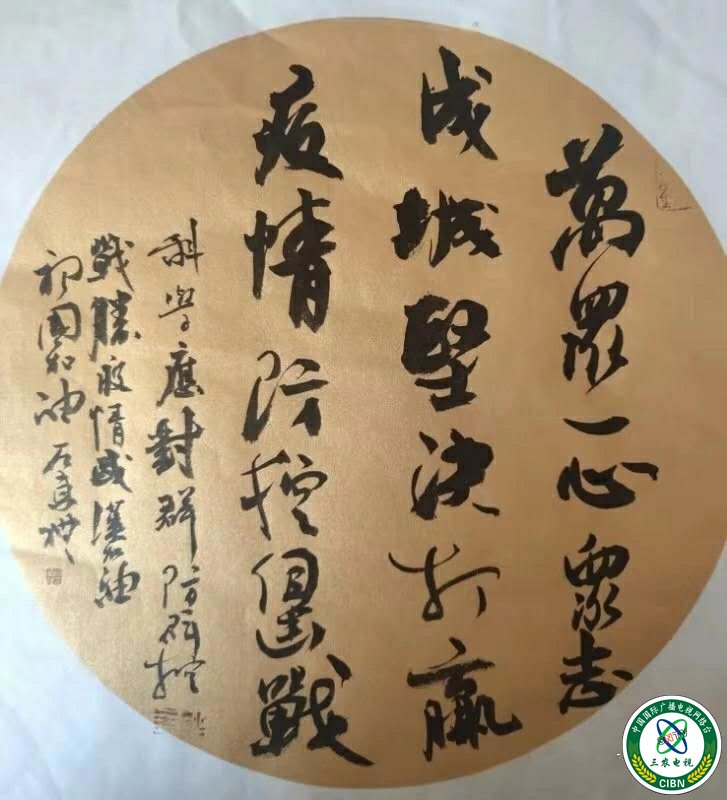 萬眾一心衆志
成城堅決打贏
疫情防控戰
科學應對群防群控
戰勝疫情武漢加油
祖國加油
中国国际广播电视网络台
三农电视
CIBN